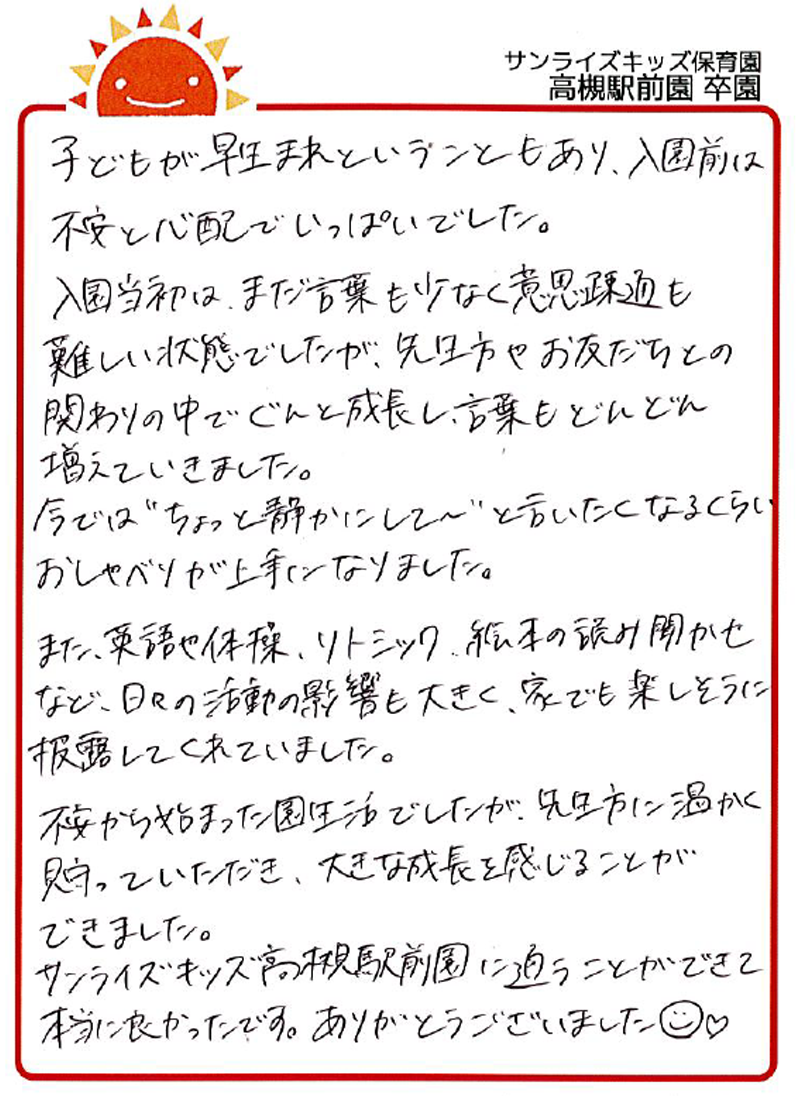 サンライズキッズ保育園
高槻駅前園 卒園
子どもが早生まれということもあり、入園前は
不安と心配でいっぱいでした。
入園当初は、まだ言葉も少なく意思疎通も
難しい状態でしたが、先生方やお友だちとの
関わりの中でぐんと成長し、言葉もどんどん
増えていきました。
今では“ちょっと静かにして〜”と言いたくなるくらい
おしゃべりが上手になりました。
また、英語や体操、リトミック、絵本の読み聞かせ
など、日々の活動の影響も大きく、家でも楽しそうに
披露してくれていました。
不安から始まった園生活でしたが、先生方に温かく
見守っていただき、大きな成長を感じることが
できました。
サンライズキッズ高槻駅前園に通うことができて
本当に良かったです。ありがとうございました☺♡